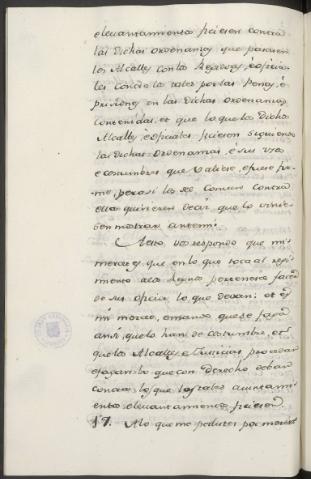 elevantamiento ficiesen contra
las dichas ordenanzas que pasasen
los Alcalles con los Regidores, é oficia
les contra los tales por las penas, é
prisiones en las dichas ordenanzas
contenidas, et que lo que los dichos
Alcalles, é oficiales ficiesen siguiendo
las dichas ordenanzas, é sus usos
é costumbres que valiese, é fuese fir
me, pero si los del Comun contra
ello quisieren decir que lo vinie
sen mostrar ante mi:
A esto vos respondo que mi
merced es que en lo que toca al regi
miento á los Regidores pertenesce facer
de sus oficios lo que devan: et es
mi merced, é mando que se faga
ansi, que lo han de costumbre, et
que los Alcalles é Justicias procedan
é fagan lo que con derecho deban
contra los que los tales ayuntami
entos, é levantamientos ficiesen
17. A lo que me pedistes por merced